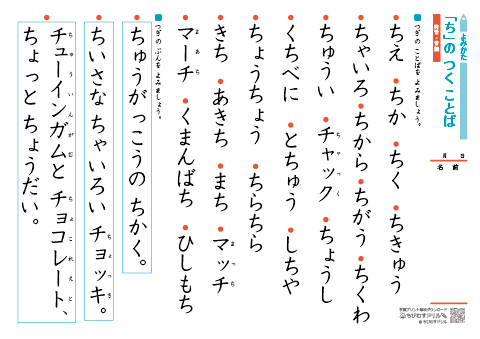 よみかた
「ち」の つく ことば
月 日
名前
つぎの ことばを よみましょう。
ちえ ・ちか ・ちく ・ちきゅう
・ちゃいろ ・ちから ・ちがう ・ちくわ
・ちゅうい ・チャック ・ちょうし
・くちべに ・とちゅう ・しちや
・ちょうちょう ・ちらちら
・きち ・あきち ・まち ・マッチ
・マーチ ・くまんばち ・ひしもち
つぎの ぶんを よみましょう。
・ちゅうがっこうの ちかく。
・ちいさな ちゃいろい チョッキ。
・チューインガムと チョコレート、
ちょっと ちょうだい。
学習プリント無料ダウンロード
ちびむすドリル